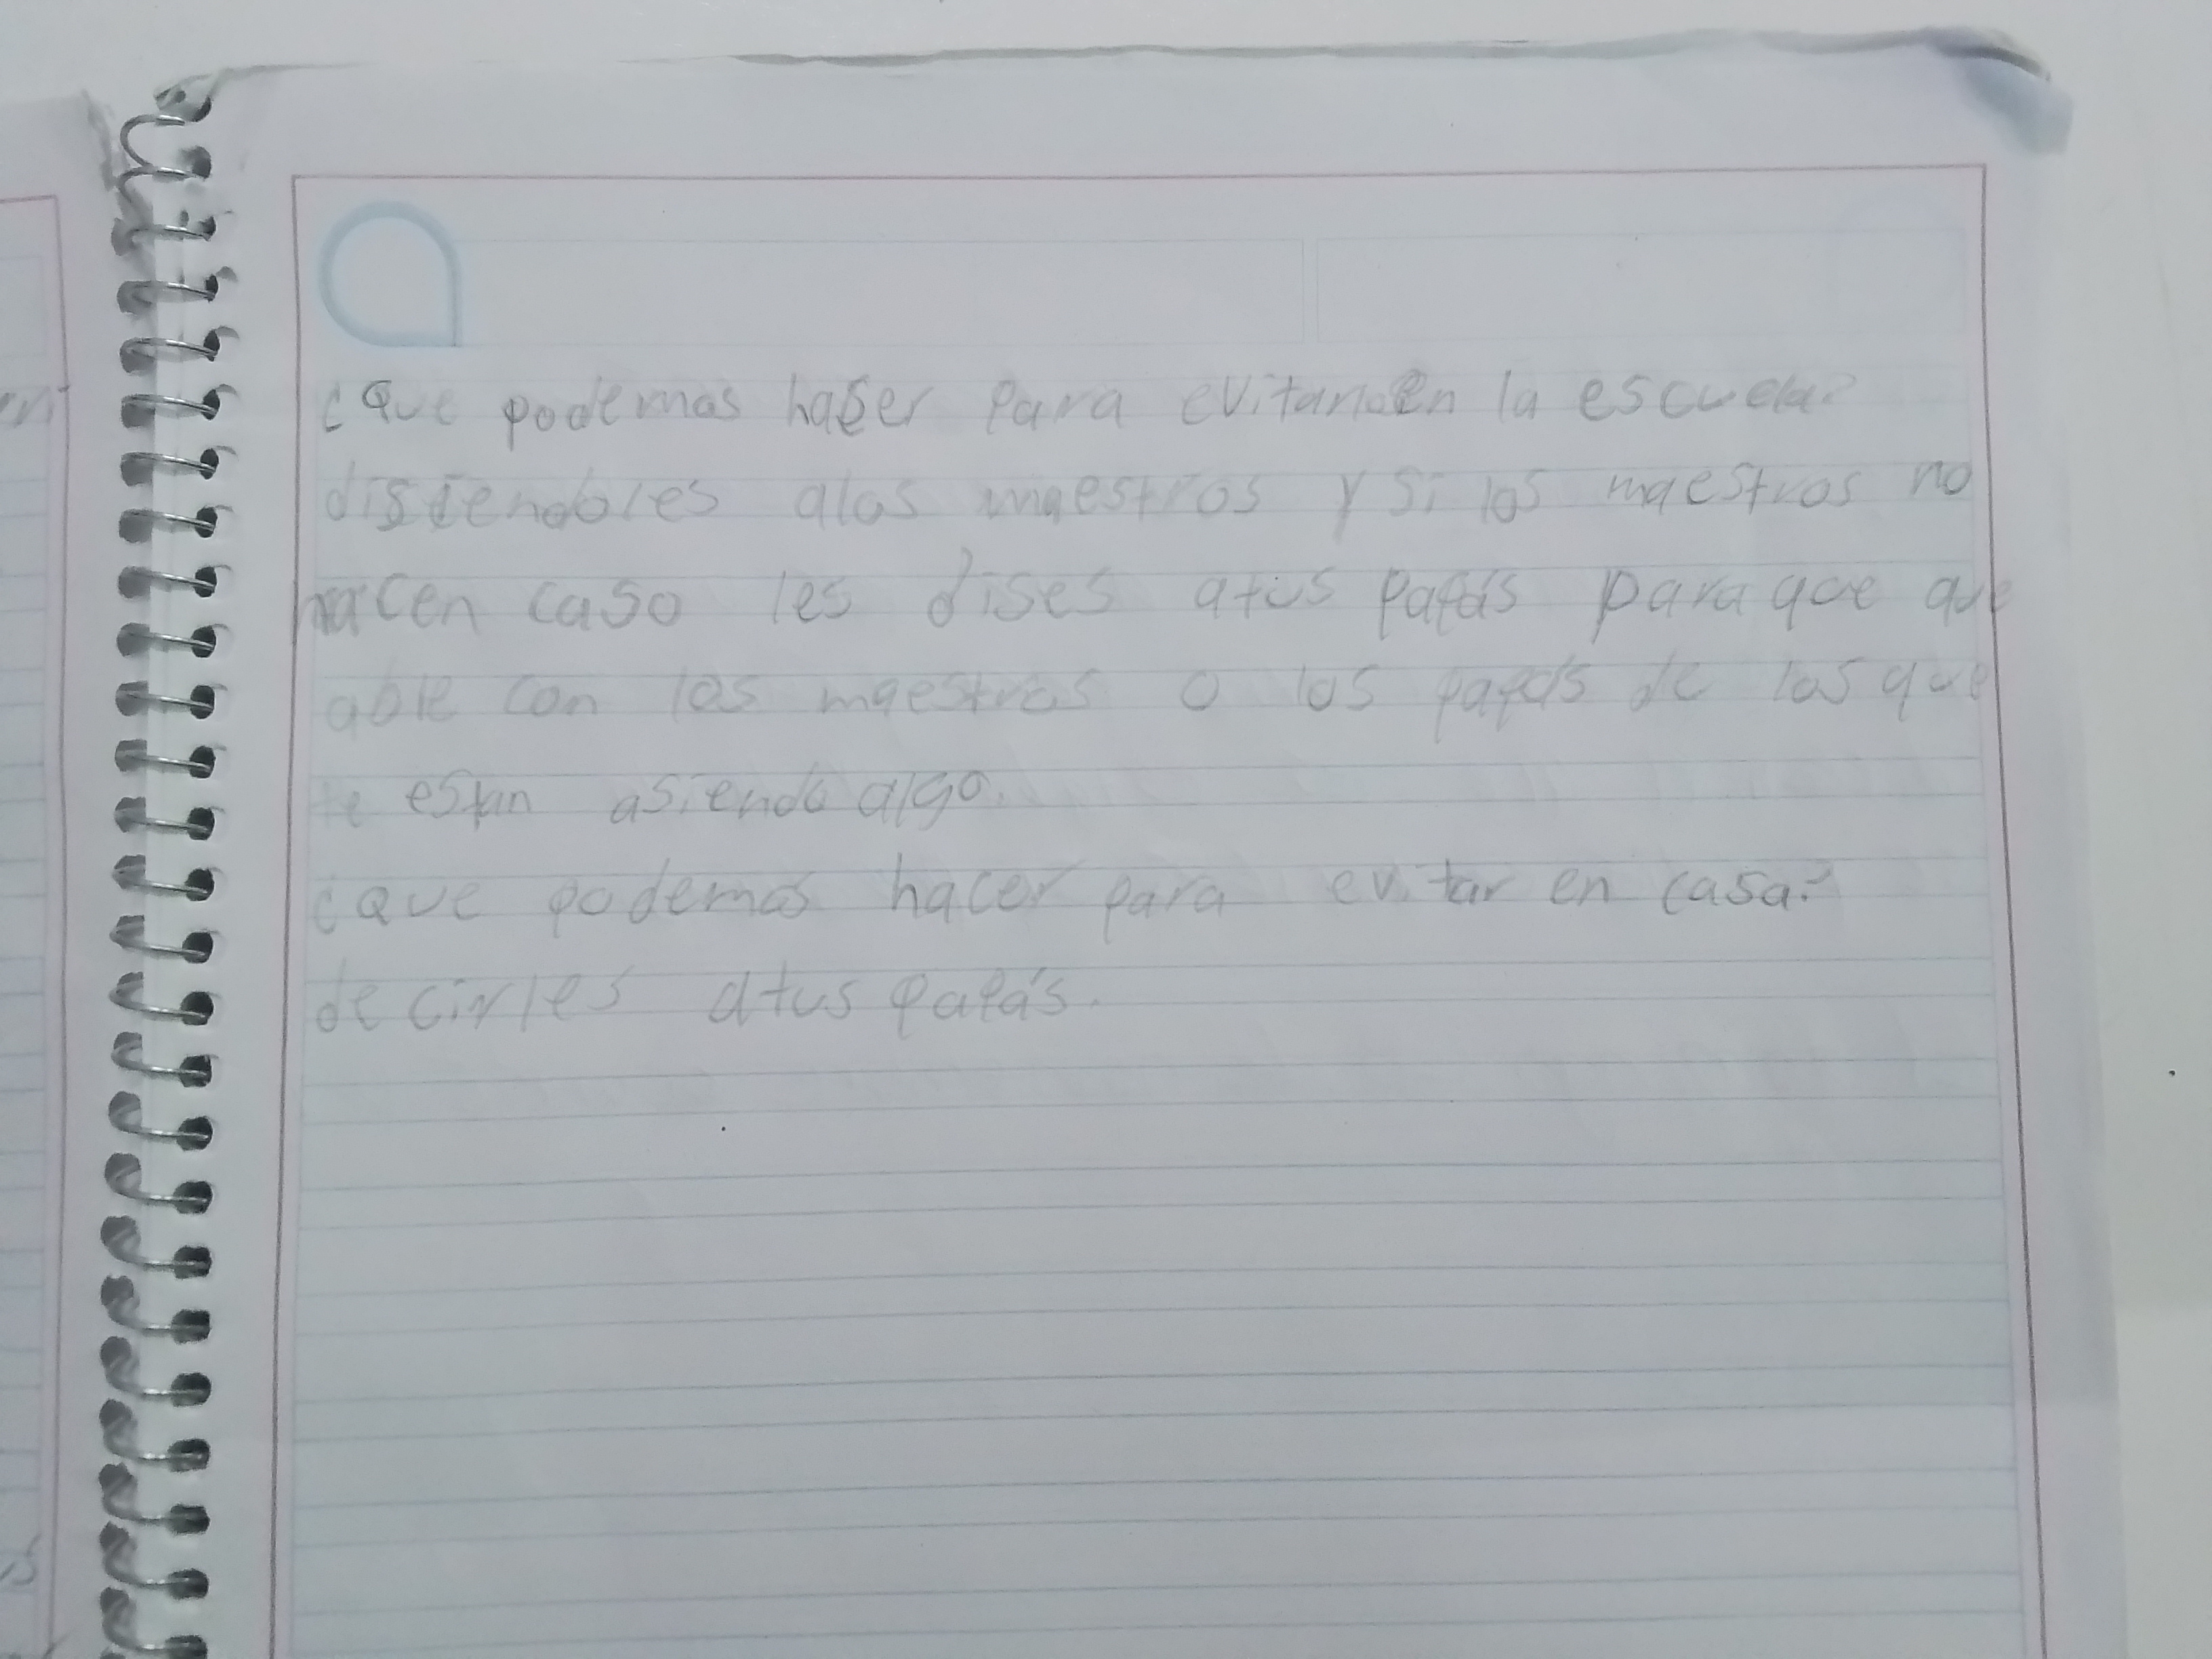 ¿Que podemos hacer para evitar en la escuela?
disiendoles alos maestros y si los maestros no
hacen caso les dises atus papás para que que
able con los maestros o los papás de los que
te estan asiendo algo.
¿que podemos hacer para evitar en casa?
decirles atus papás.